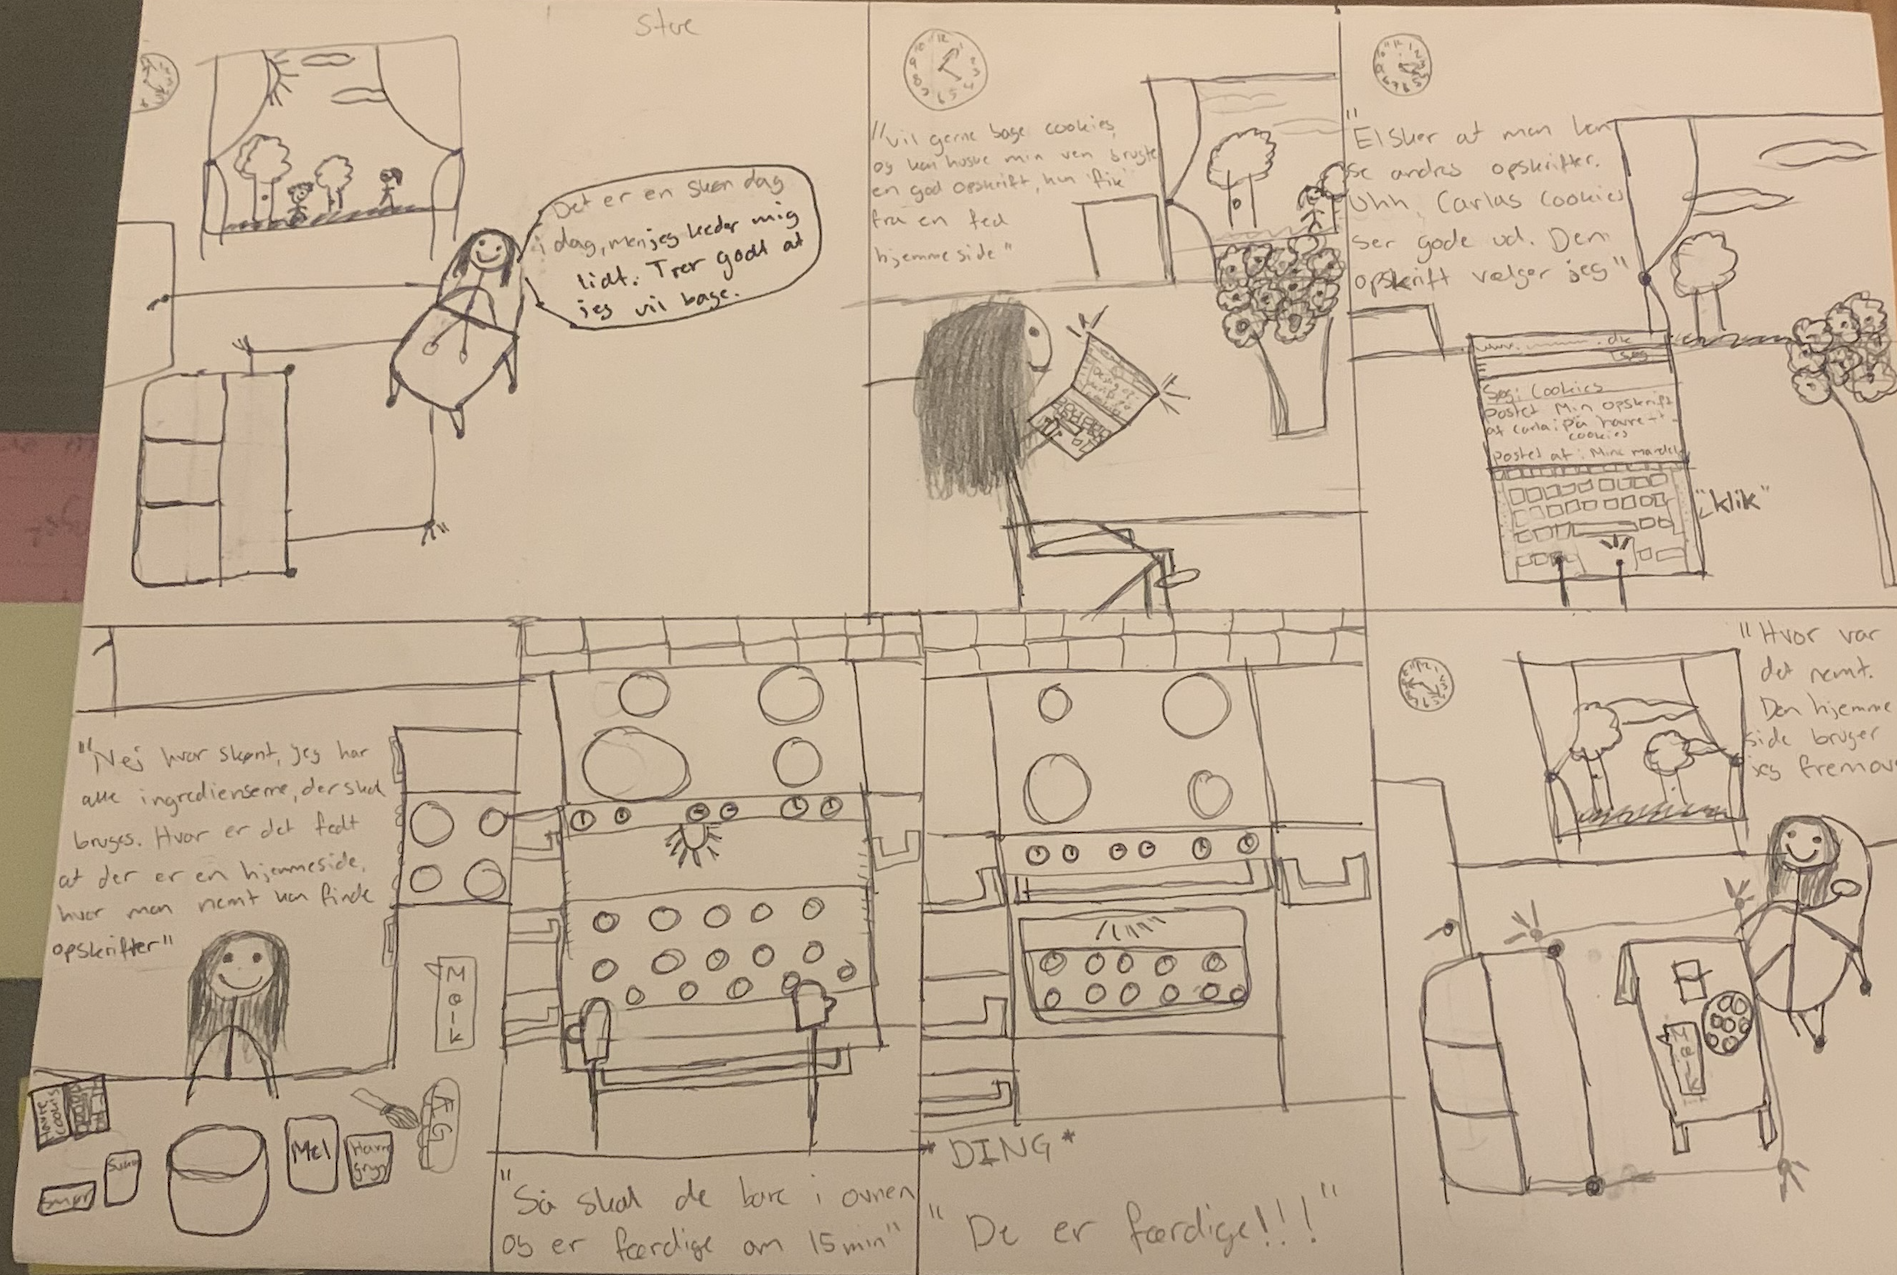 Stue
Det er en skøn dag
i dag, men jeg keder mig
lidt. Tror godt at
jeg vil bage.
"Vil gerne bage cookies,
og kan huske min ven brugte
en god opskrift, hun fik
fra en fed
hjemmeside"
"Elsker at man kan
se andres opskrifter.
Uhh, Carlas cookies
ser gode ud. Den
opskrift vælger jeg"
www. .dk
søg
Søg: Cookies
Postet Min opskrift
af Carla: på havre-
cookies
postet af: Mine mandel
"klik"
"Nej hvor skønt, jeg har
alle ingredienserne, der skal
bruges. Hvor er det fedt
at der er en hjemmeside,
hvor man nemt kan finde
opskrifter"
Mælk
Havre
cookies
Smør
Mel
Havre
gryn
ÆG
"Så skal de bare i ovnen
og er færdige om 15 min"
*DING*
"De er færdige!!!"
"Hvor var
det nemt.
Den hjemme
side bruger
jeg fremover
Mælk